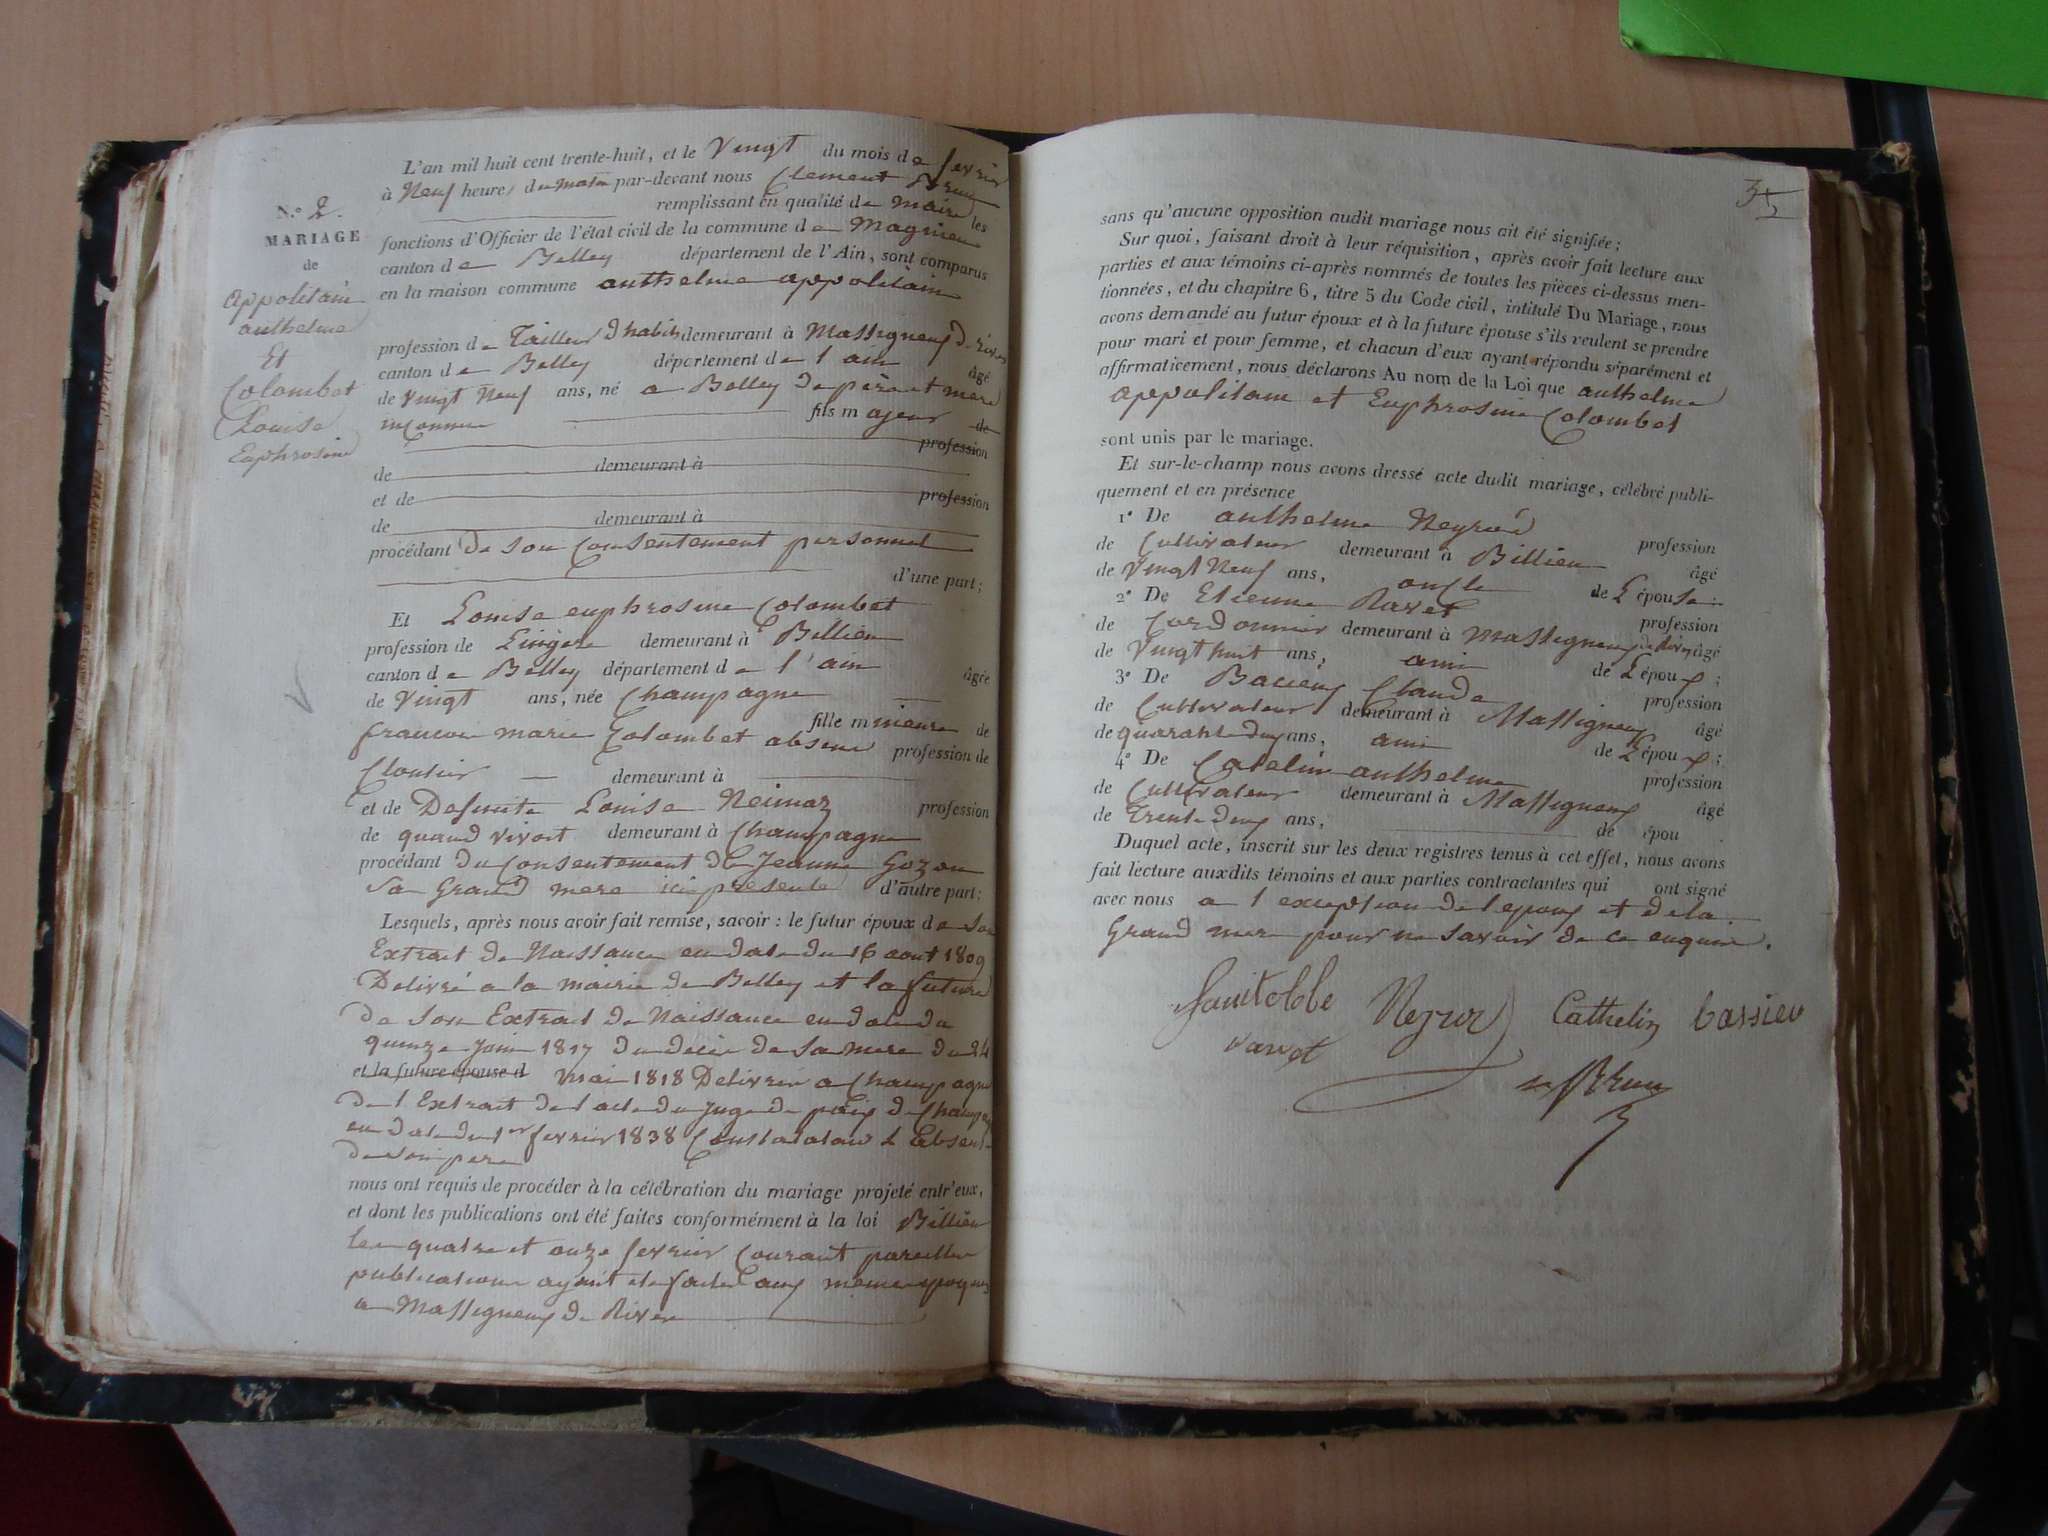 N.º 2.
MARIAGE
de
appolitain
anthelme
Et
Colombet
Louise
Euphrosine
L'an mil huit cent trente-huit, et le Vingt du mois de fevrier
à Neuf heures du matin par-devant nous Clement Brun
remplissant en qualité de maire les
fonctions d'Officier de l'état civil de la commune de Magnieu
canton de Belley département de l'Ain, sont comparus
en la maison commune anthelme appolitain
profession de Tailleur D habits demeurant à Massigneux de rives
canton de Belley département de l ain âgé
de Vingt Neuf ans, né a Belley de père et mere
inconnue fils majeur de
profession
de demeurant à
et de profession
de demeurant à
procédant de son Consentement personnel
d'une part;
Et Louise euphrosine Colombet
profession de Lingere demeurant à Billieu
canton de Belley département de l'ain âgée
de Vingt ans, née Champagne
fille mineure de
francois marie Colombet absent profession de
Cloutier demeurant à
et de Defunte Louise Neimoz profession
de quand vivoit demeurant à Champagne
procédant du Consentement de Jeanne Gozon
Sa Grand mere ici presente d'autre part:
Lesquels, après nous avoir fait remise, savoir: le futur époux de son
Extrait de Naissance en date du 16 aout 1809
Delivré a la mairie de Belley et la future
de son Extrait de Naissance en date du
quinze Juin 1817 du décès de Sa mere du 24
et la future épouse d mai 1818 Delivrés a Champagne
de l Extrait de l acte du Juge de paix de Champagne
en date du 1er fevrier 1838 Constatant l absence
de son pere
nous ont requis de procéder à la célébration du mariage projeté entr'eux,
et dont les publications ont été faites conformément à la loi Billieu
les quatre et onze fevrier Courant pareilles
publications ayant ete faites aux mêmes époques
a Massigneux de Rives
sans qu'aucune opposition audit mariage nous ait été signifiée;
Sur quoi, faisant droit à leur réquisition, après avoir fait lecture aux
parties et aux témoins ci-après nommés de toutes les pièces ci-dessus men-
tionnées, et du chapitre 6, titre 5 du Code civil, intitulé Du Mariage, nous
avons demandé au futur époux et à la future épouse s'ils veulent se prendre
pour mari et pour femme, et chacun d'eux ayant répondu séparément et
affirmativement, nous déclarons Au nom de la Loi que anthelme
appolitain et Euphrosine Colombet
sont unis par le mariage.
Et sur-le-champ nous avons dressé acte dudit mariage, célébré publi-
quement et en présence
1º De anthelme Neyrod profession
de Cultivateur demeurant à Billieu âgé
de Vingt Neuf ans, oncle de L épouse;
2º De Etienne Ravet profession
de Cordonnier demeurant à Massigneux de Rives âgé
de Vingt huit ans, ami de L époux;
3º De Bacieux Claude profession
de Cultivateur demeurant à Massigneux âgé
de quarante deux ans, ami de L époux;
4º De Catelin anthelme profession
de Cultivateur demeurant à Massigneux âgé
de Trente deux ans, de épou
Duquel acte, inscrit sur les deux registres tenus à cet effet, nous avons
fait lecture auxdits témoins et aux parties contractantes qui ont signé
avec nous a l exception de l epoux et de la
Grand mere pour ne Savoir de ce enquis.
Neyrod Cathelin bassieu
ravet
Brun